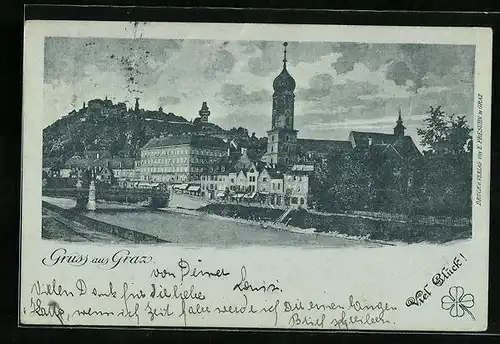 DRUCK U. VERLAG VON E. PREISCHEN IN GRAZ.
Gruss aus Graz.
von Deiner Louise
Viel Glück!
Vielen Dank für die liebe
Karte, wenn ich Zeit habe werde ich dir einen langen
Brief schreiben.